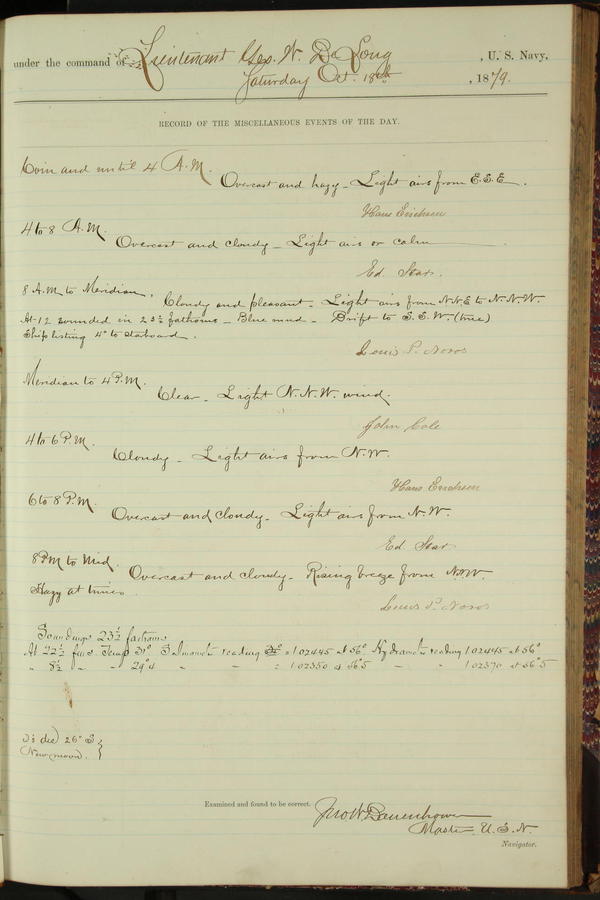 under the command of Lieutenant Geo. W. De Long, U. S. Navy,
Saturday Oct. 18th, 1879.
RECORD OF THE MISCELLANEOUS EVENTS OF THE DAY.
Com and until 4 A.M.
Overcast and hazy - Light airs from E.S.E.
Hans Erichsen
4 to 8 A.M.
Overcast and cloudy - Light airs or calm
Ed. Star.
8 A.M. to Meridian.
Cloudy and pleasant. Light airs from N.N.E to N.N.W.
At 12 sounded in 23½ fathoms - Blue mud - Drift to S.S.W. (true)
Ship listing 4° to starboard.
Louis P. Noros
Meridian to 4 P.M.
Clear - Light N.N.W. wind.
John Cole
4 to 6 P.M.
Cloudy - Light airs from N.W.
Hans Erichsen
6 to 8 P.M.
Overcast and cloudy. Light airs from N.W.
Ed. Star
8 PM to Mid
Overcast and cloudy - Rising breeze from N.W.
Hazy at times
Louis P. Noros
Soundings 23½ fathoms
At 22½ fms Temp 31° Salinometer reading 1.02445 at 56° Hydrometer reading 1.02445 at 56°
" 8½ " " 29°4 " " 1.02350 at 56°5 " " 1.02370 at 56°5
dec 26° S
(New moon.)
Examined and found to be correct.
Jno W Danenhower
Master, U.S.N.
Navigator.